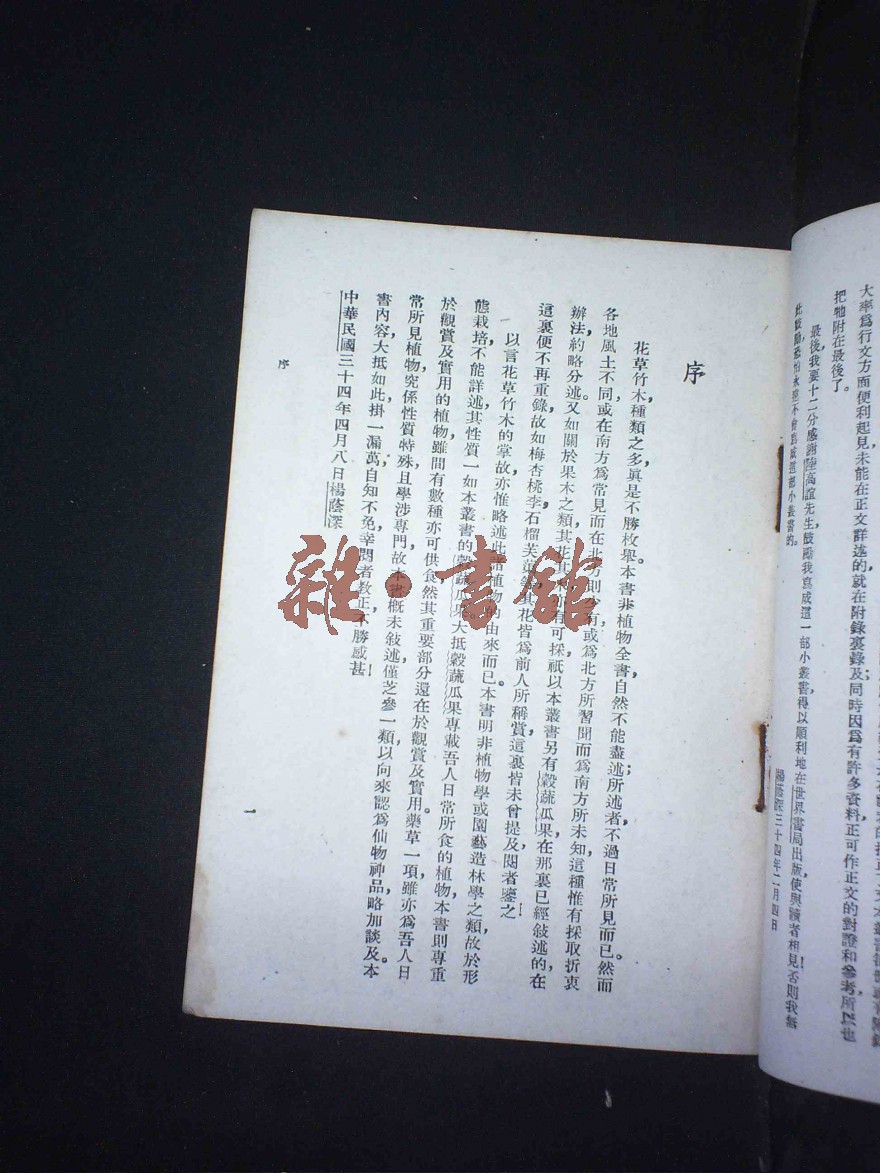 大率爲行文方面便利起見未能在正文詳述的就在附錄裏錄及同時因爲有許多資料正可作正文的對證和參考所以也
把牠附在最後了。
最後我要十二分感謝陸高誼先生鼓勵我寫成這一部小叢書得以順利地在世界書局出版使與讀者相見否則我無
此鼓勵恐怕永遠不會寫成這部小叢書的。
楊蔭深三十四年二月四日
序
花草竹木，種類之多，眞是不勝枚舉。本書非植物全書，自然不能盡述；所述者不過日常所見而已。然而
各地風土不同，或在南方爲常見而在北方則少有，或爲北方所習聞而爲南方所未知，這種惟有採取折衷
辦法，約略分述。又如關於果木之類，其花其有可採，祇以本叢書另有穀蔬瓜果，在那裏已經敍述的，在
這裏便不再重錄。故如梅杏桃李石榴芙蕖等，其花皆爲前人所稱賞，這裏皆未曾提及，閱者鑒之！
以言花草竹木的掌故，亦惟略述此諸植物的由來而已。本書明非植物學或園藝造林學之類，故於形
態栽培，不能詳述其性質，一如本叢書的穀蔬瓜果。大抵穀蔬瓜果專載吾人日常所食的植物，本書則專重
於觀賞及實用的植物，雖間有數種亦可供食，然其重要部分還在於觀賞及實用。藥草一項，雖亦爲吾人日
常所見植物，究係性質特殊，且學涉專門，故本書概未敍述，僅芝參一類，以向來認爲仙物神品，略加談及。本
書內容大抵如此，掛一漏萬，自知不免，幸閱者教正，不勝感甚！
中華民國三十四年四月八日楊蔭深
序
一
雜·書館